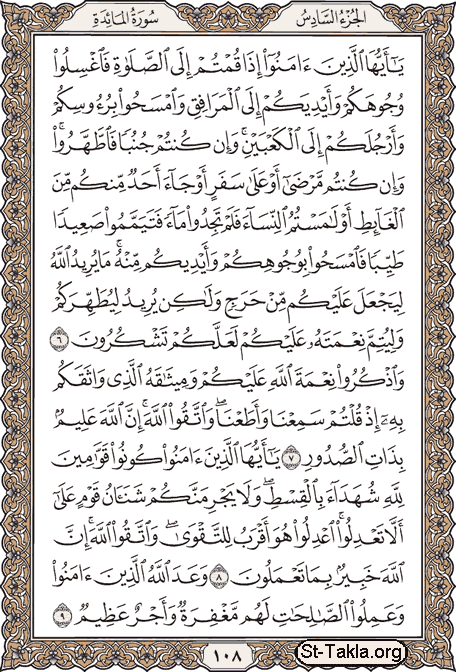 سورة المائدة الجزء السادس
يَٰٓأَيُّهَا ٱلَّذِينَ ءَامَنُوٓا۟ إِذَا قُمْتُمْ إِلَى ٱلصَّلَوٰةِ فَٱغْسِلُوا۟
وُجُوهَكُمْ وَأَيْدِيَكُمْ إِلَى ٱلْمَرَافِقِ وَٱمْسَحُوا۟ بِرُءُوسِكُمْ
وَأَرْجُلَكُمْ إِلَى ٱلْكَعْبَيْنِ ۚ وَإِن كُنتُمْ جُنُبًا فَٱطَّهَّرُوا۟ ۚ
وَإِن كُنتُم مَّرْضَىٰٓ أَوْ عَلَىٰ سَفَرٍ أَوْ جَآءَ أَحَدٌ مِّنكُم مِّنَ
ٱلْغَآئِطِ أَوْ لَٰمَسْتُمُ ٱلنِّسَآءَ فَلَمْ تَجِدُوا۟ مَآءً فَتَيَمَّمُوا۟ صَعِيدًا
طَيِّبًا فَٱمْسَحُوا۟ بِوُجُوهِكُمْ وَأَيْدِيكُم مِّنْهُ ۚ مَا يُرِيدُ ٱللَّهُ
لِيَجْعَلَ عَلَيْكُم مِّنْ حَرَجٍ وَلَٰكِن يُرِيدُ لِيُطَهِّرَكُمْ
وَلِيُتِمَّ نِعْمَتَهُۥ عَلَيْكُمْ لَعَلَّكُمْ تَشْكُرُونَ ٦
وَٱذْكُرُوا۟ نِعْمَةَ ٱللَّهِ عَلَيْكُمْ وَمِيثَٰقَهُ ٱلَّذِى وَاثَقَكُم
بِهِۦٓ إِذْ قُلْتُمْ سَمِعْنَا وَأَطَعْنَا ۖ وَٱتَّقُوا۟ ٱللَّهَ ۚ إِنَّ ٱللَّهَ عَلِيمٌۢ
بِذَاتِ ٱلصُّدُورِ ٧ يَٰٓأَيُّهَا ٱلَّذِينَ ءَامَنُوا۟ كُونُوا۟ قَوَّٰمِينَ
لِلَّهِ شُهَدَآءَ بِٱلْقِسْطِ ۖ وَلَا يَجْرِمَنَّكُمْ شَنَـَٔانُ قَوْمٍ عَلَىٰٓ
أَلَّا تَعْدِلُوا۟ ۚ ٱعْدِلُوا۟ هُوَ أَقْرَبُ لِلتَّقْوَىٰ ۖ وَٱتَّقُوا۟ ٱللَّهَ ۚ إِنَّ
ٱللَّهَ خَبِيرٌۢ بِمَا تَعْمَلُونَ ٨ وَعَدَ ٱللَّهُ ٱلَّذِينَ ءَامَنُوا۟
وَعَمِلُوا۟ ٱلصَّٰلِحَٰتِ ۙ لَهُم مَّغْفِرَةٌ وَأَجْرٌ عَظِيمٌ ٩
١٠٨
St-Takla.org